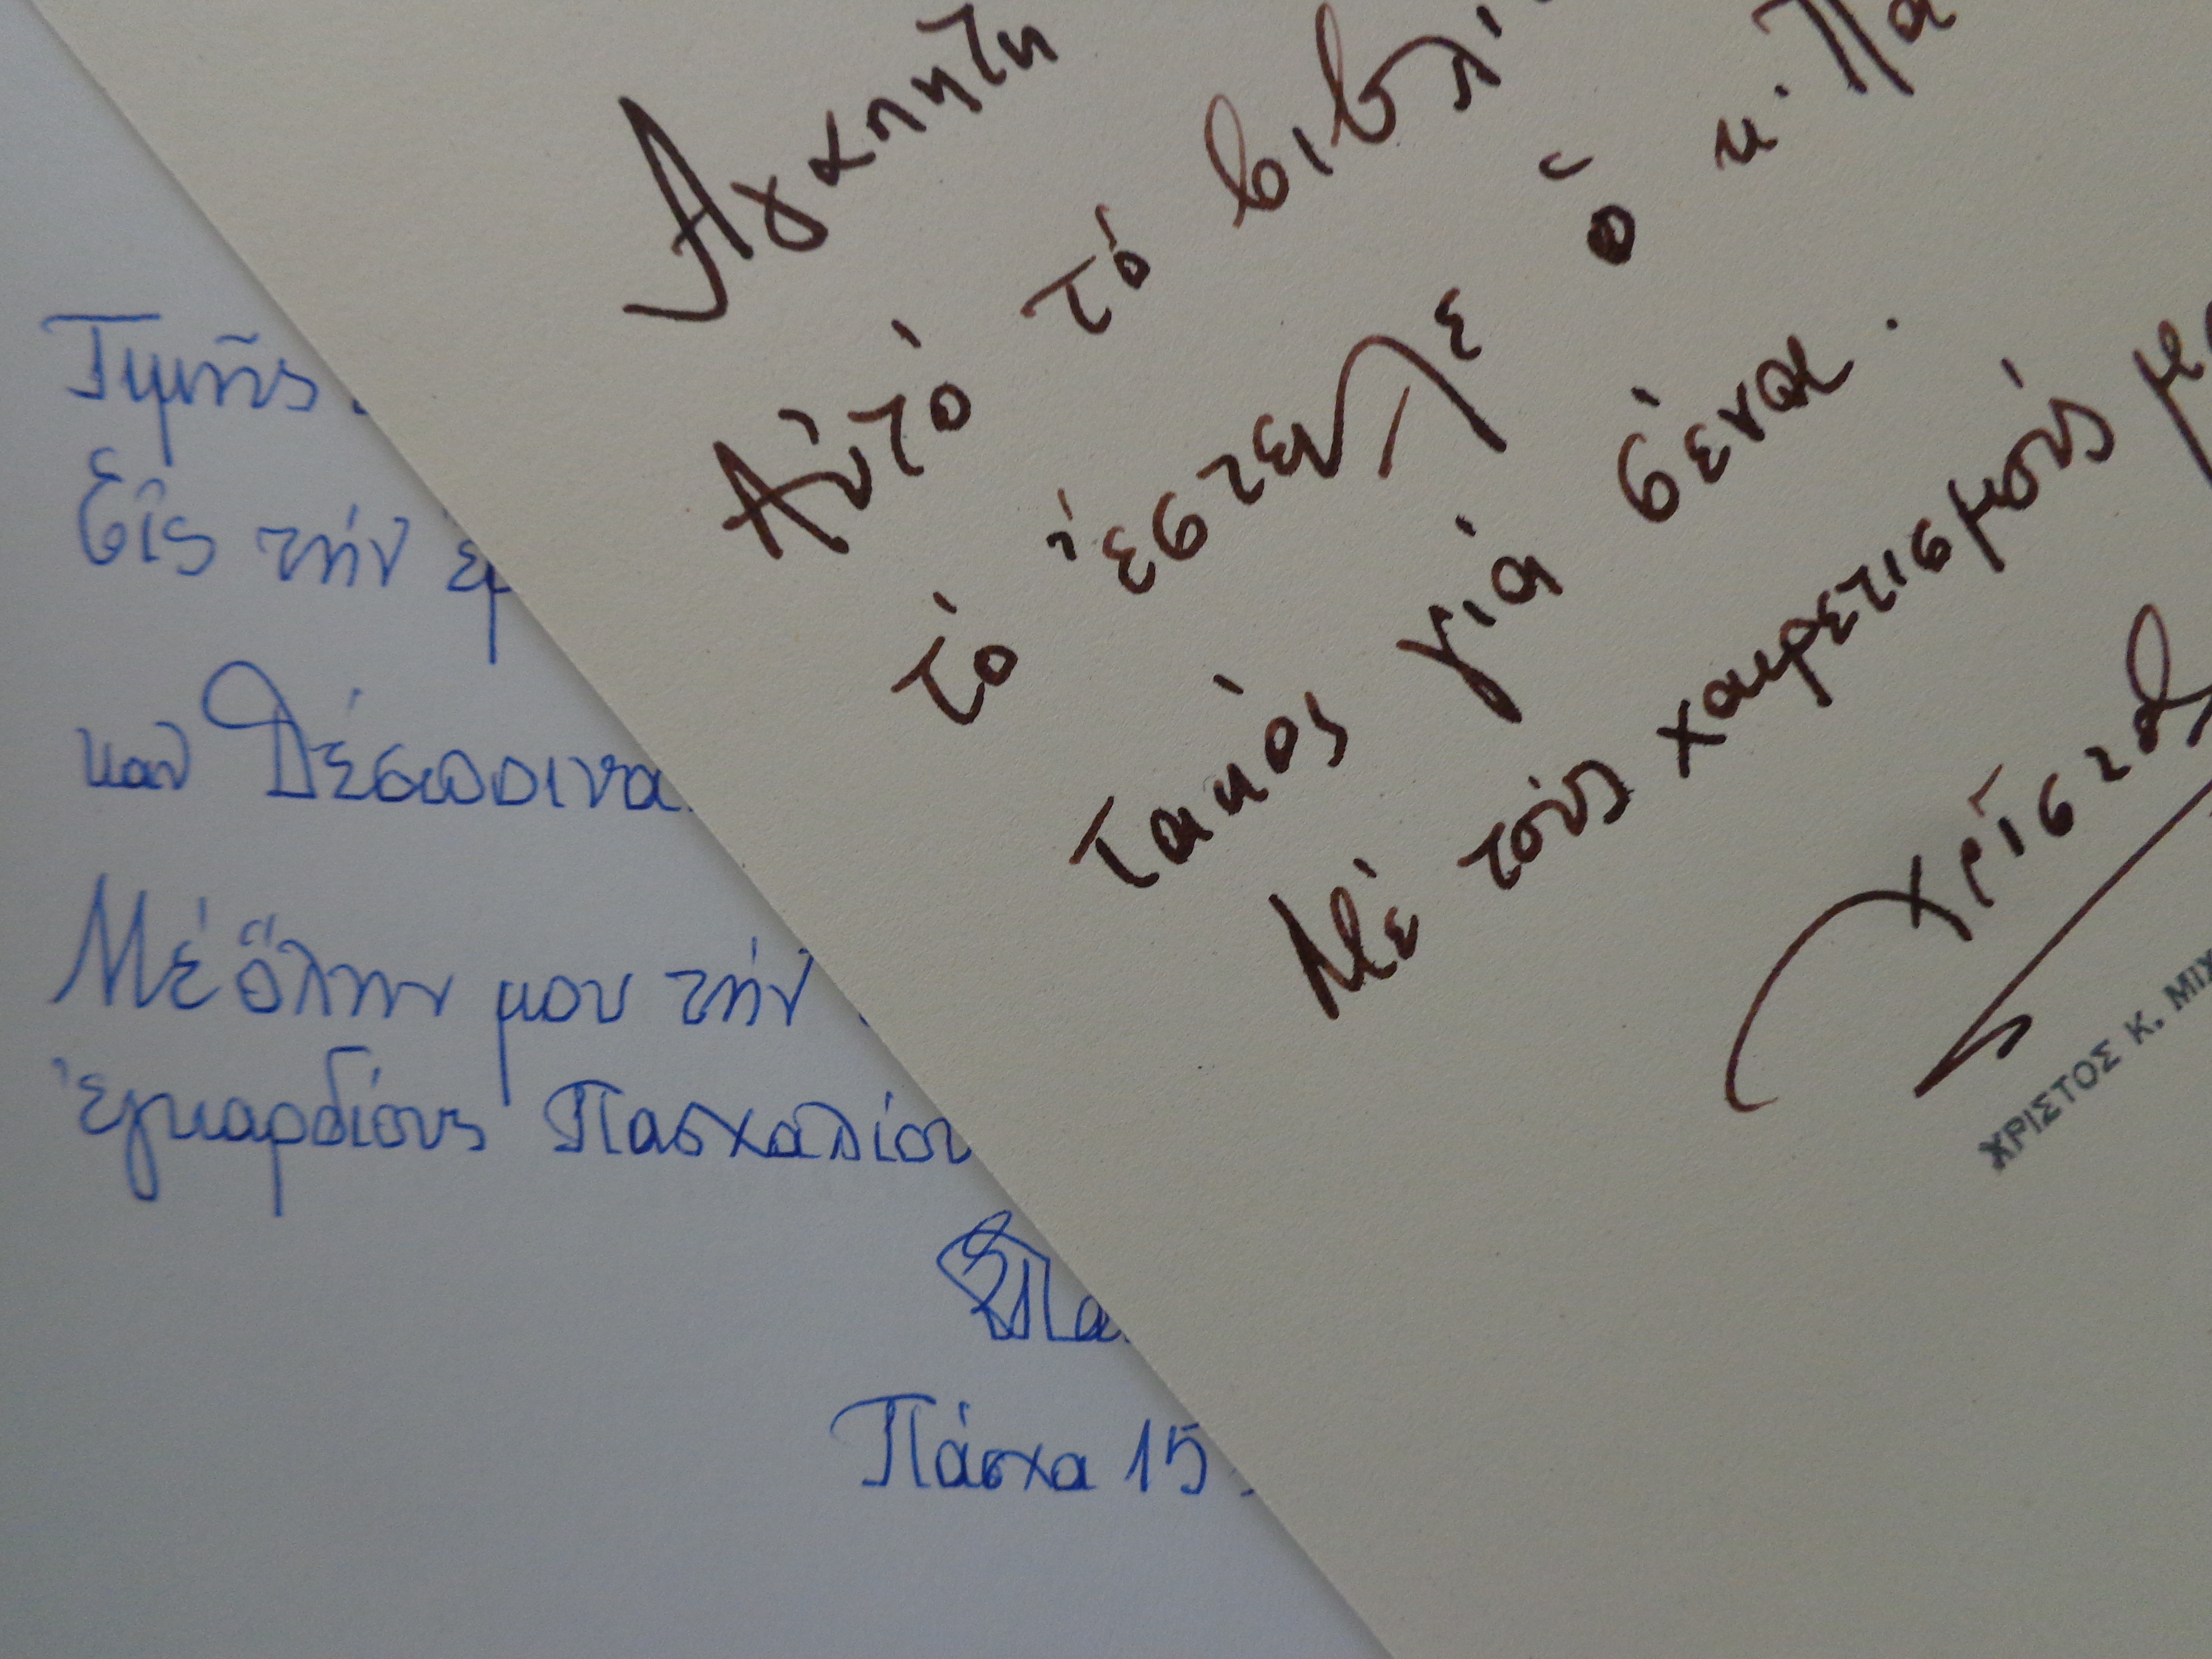 Τιμῆς
Εἰς τήν ἐμ
καὶ Δέσποινα
Μέ ὅλην μου τήν
ἐγκαρδίους Πασχαλίου
Πα
Πάσχα 15
Ἀγαπητη
Αὐτό τό βιβλί
τό ἔστειλε ὁ κ. Πα
τακός γιά σένα.
Μέ τούς χαιρετισμούς μ
Χρίστο
ΧΡΙΣΤΟΣ Κ. ΜΙΧ